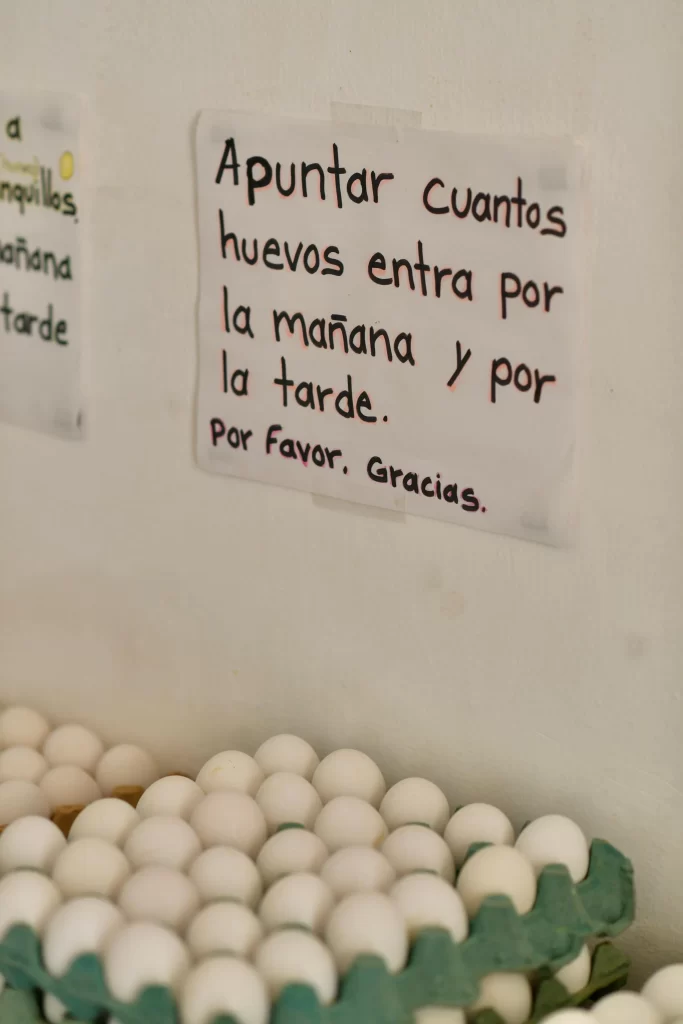 a
nquillos,
añana
tarde
Apuntar cuantos
huevos entra por
la mañana y por
la tarde.
Por Favor. Gracias.